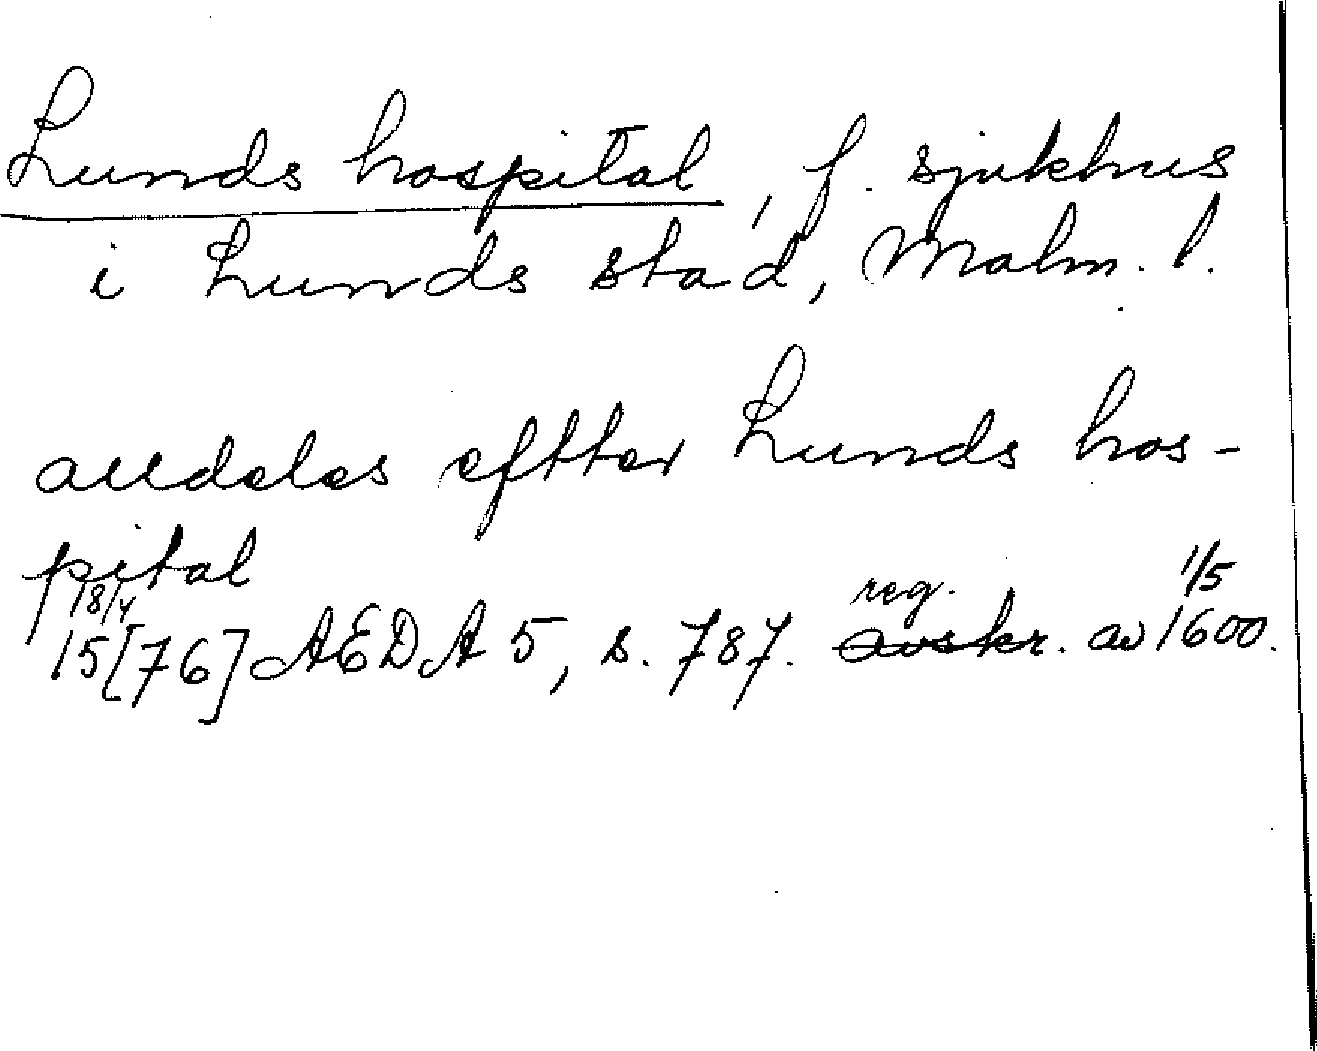 Lunds hospital, f. sjukhus
i Lunds stad, Malm. l.
alldeles eftter Lunds hos-
pital
18/4 reg. 1/5
15[76] AEDA 5, s. 787. avskr. av 1600.